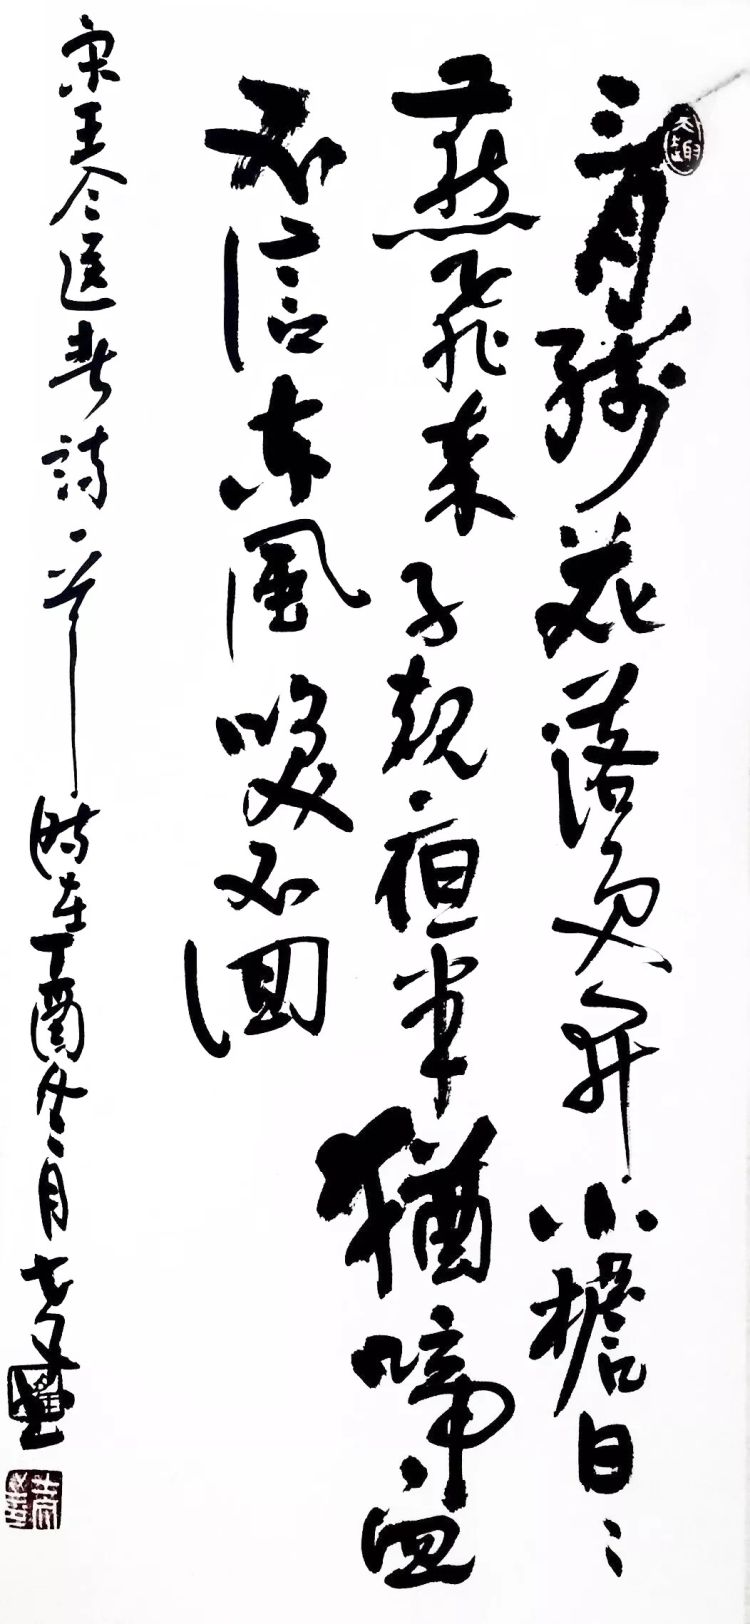 三月殘花落更開小檐日〻
燕飛來子規夜半猶啼血
不信東風喚不回
宋王令送春詩一首 時在丁酉冬月